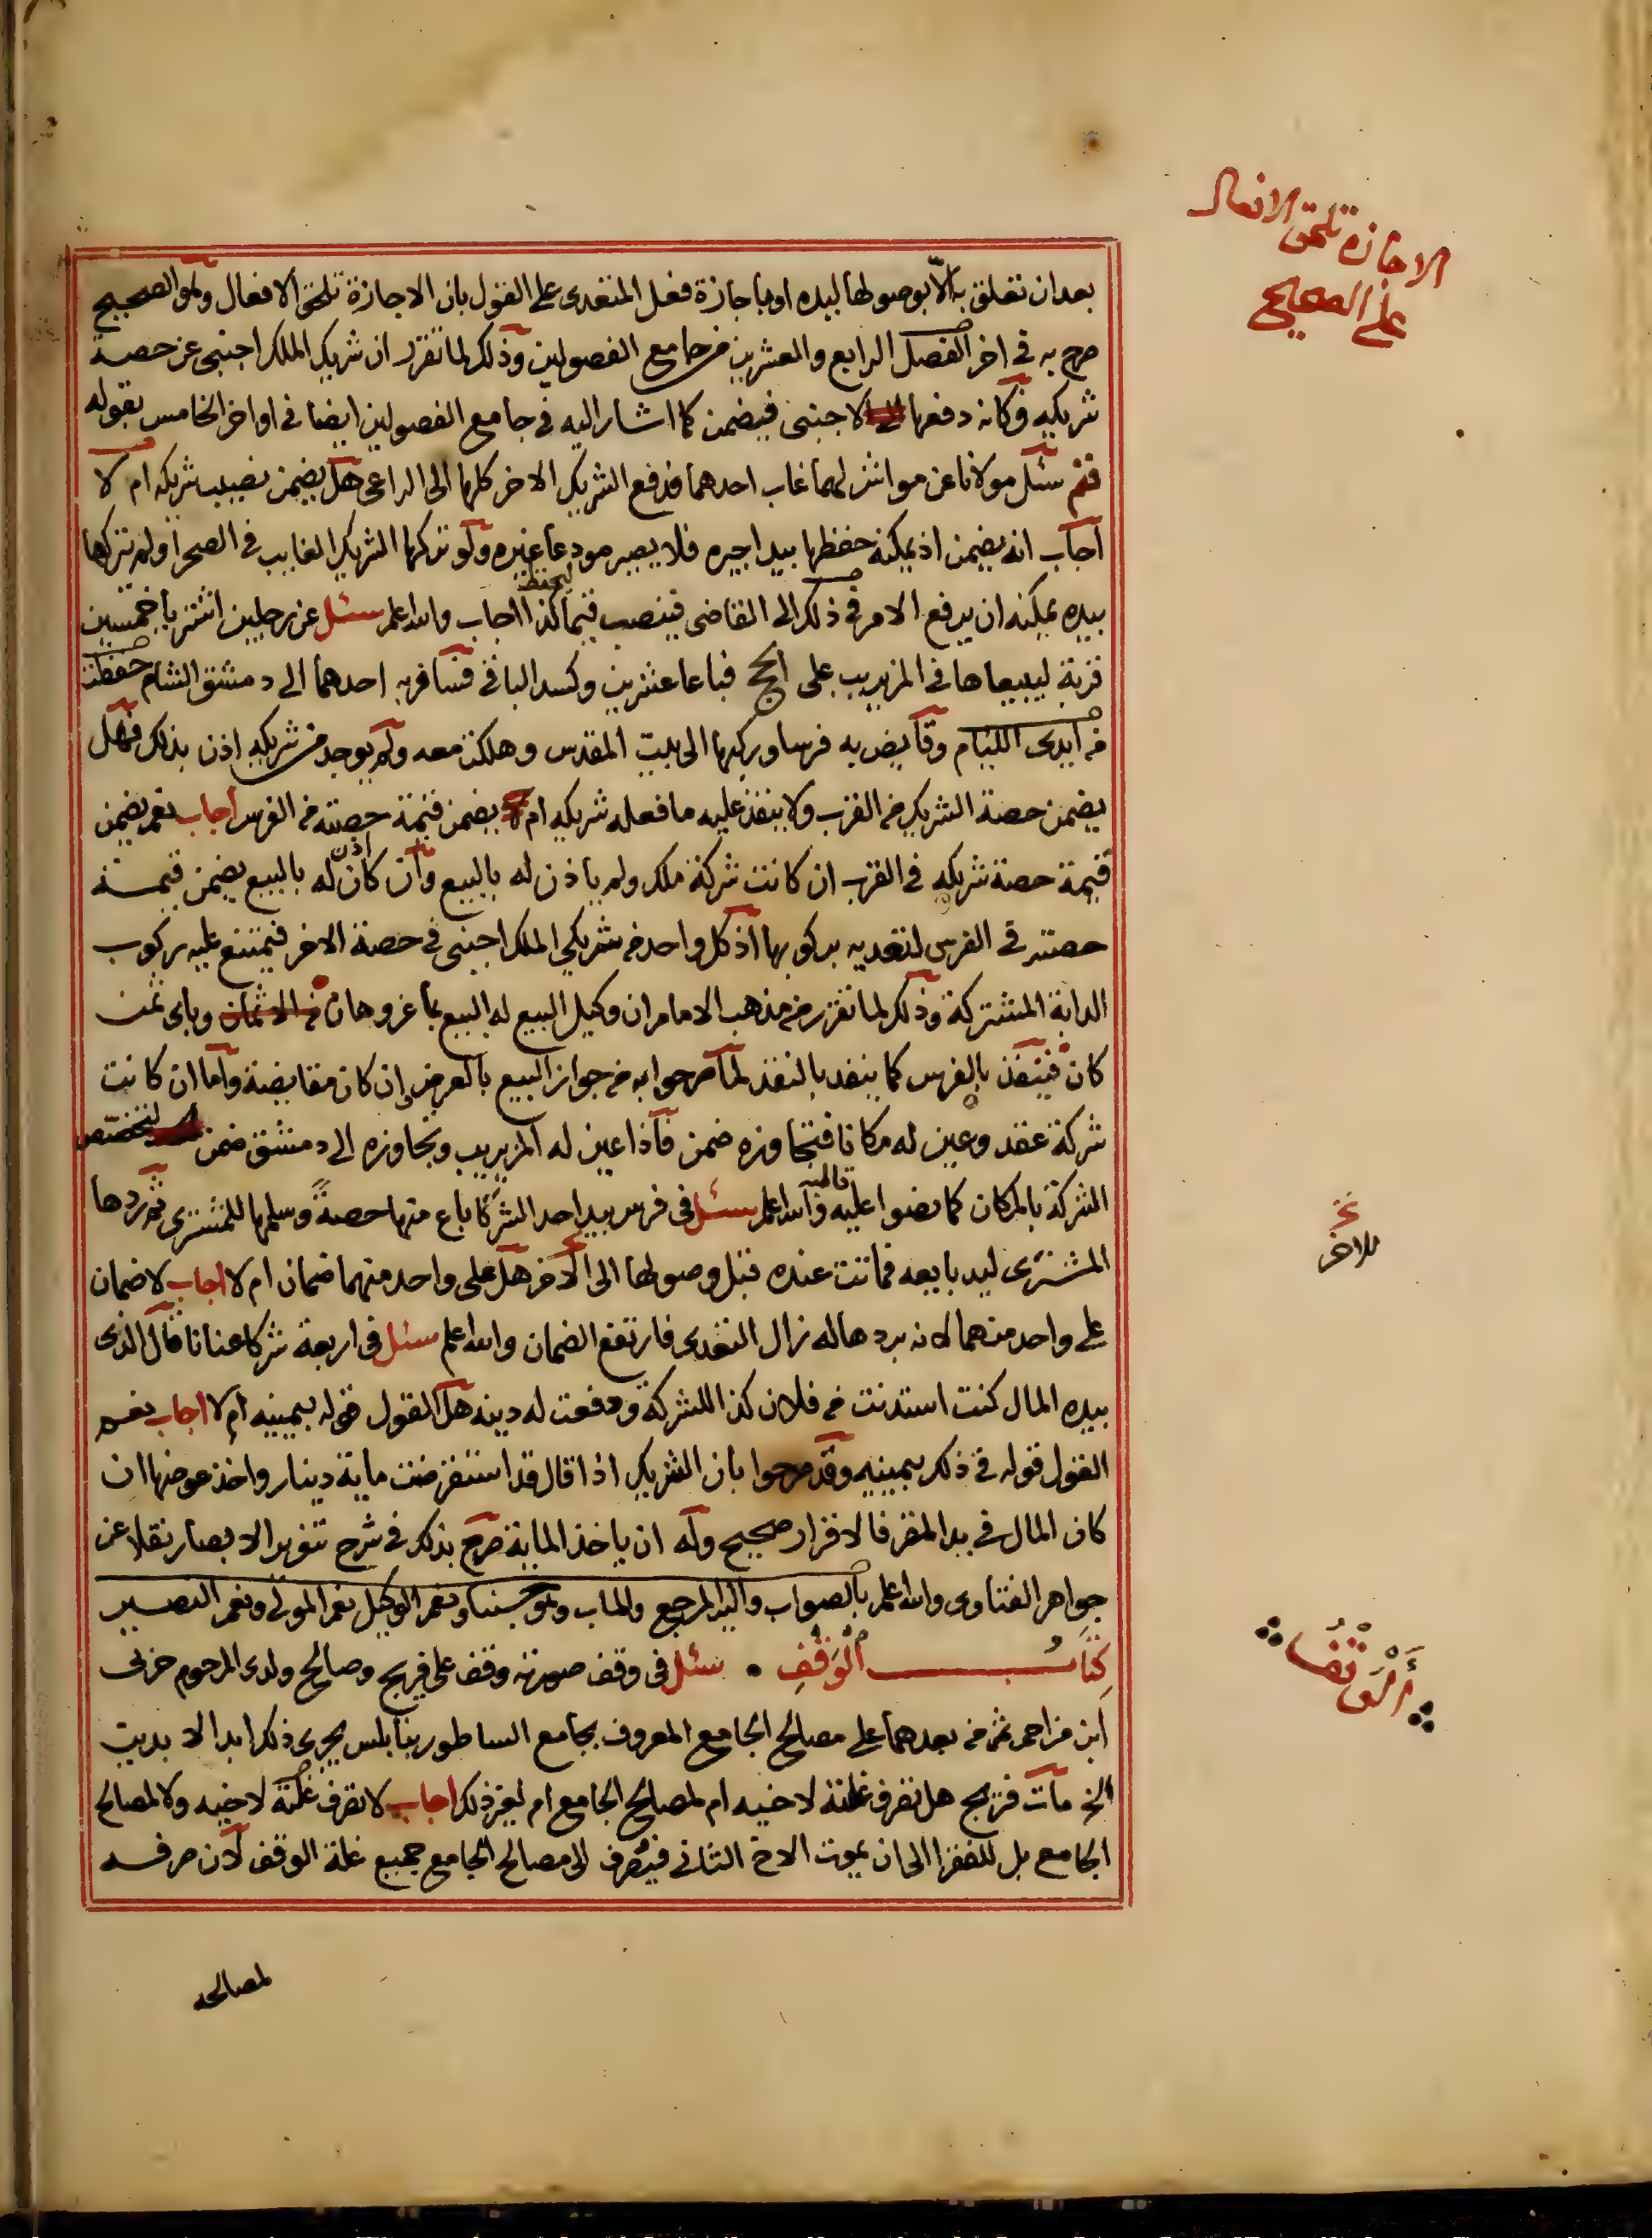 الاجازة تلحق الافعال
على الصحيح
بعد ان تعلق به الا بوصولها ليده او باجازة فعل المتعدى على القول بان الاجازة تلحق الافعال وهو الصحيح
صرح به فى اخر الفصل الرابع والعشرين من جامع الفصولين وذلك لما تقرر ان شريك الملك اجنبى عن حصة
شريكه فكانه دفعها لاجنبى فيضمن كما اشار اليه فى جامع الفصولين ايضا فى اواخر الخامس بقوله
سئل مولانا عن مواش لهما غاب احدهما فدفع الشريك الاخر كلها الى الراعى هل يضمن نصيب شريكه ام لا
اجاب انه يضمن اذ يمكنه حفظها بيد اجيره فلا يصير مودعا غيره ولو تركها الشريك الغايب فى الصحرا ولم يتركها
بيده يمكنه ان يرفع الامر فى ذلك الى القاضى فينصب قيما ليحفظ كذا اجاب والله اعلم سئل عن رجلين اشتريا خمسين
قربة ليبيعاها فى المزيريب على الحج فباعا عشرين وكسد الباقى فسافر به احدهما الى دمشق الشام حفظت
من ايدى اللئام وقايض به فرسا وركبها الى بيت المقدس وهلكت معه ولم يوجد من شريكه اذن بذلك فهل
يضمن حصة الشريك من القرب ولا ينفذ عليه ما فعله شريكه ام يضمن قيمة حصته من الفرس اجاب نعم يضمن
قيمة حصة شريكه فى القرب ان كانت شركة ملك ولم ياذن له بالبيع وان كان اذن له بالبيع يضمن قيمة
حصته فى الفرس لتعديه بركوبها اذ كل واحد من شريكي الملك اجنبى فى حصة الاخر فيمتنع عليه ركوب
الدابة المشتركة وذلك لما تقرر من مذهب الامام ان وكيل البيع له البيع بما عز وهان من الاثمان وباى ثمن
كان فينفذ بالفرس كما ينفذ بالنقد لما صرحوا به من جواز البيع بالعرض ان كان مقايضة واما ان كانت
شركة عقد وعين له مكانا فتجاوزه ضمن فاذا عين له المزيريب وتجاوزه الى دمشق ضمن لتخصص
الشركة بالمكان كما نصوا عليه قاطبة والله اعلم سئل فى فرس بيد احد الشركا باع منها حصة وسلمها للمشترى ثم ردها
المشترى ليد بايعه فماتت عنده قبل وصولها الى الاخر هل على واحد منهما ضمان ام لا اجاب لا ضمان
على واحد منهما لانه بردها له زال التعدى فارتفع الضمان والله اعلم سئل فى اربعة شركا عنانا قال الذى
بيده المال كنت استدنت من فلان كذا للشركة ودفعت له دينه هل القول قوله بيمينه ام لا اجاب نعم
القول قوله فى ذلك بيمينه وقد صرحوا بان الشريك اذا قال قد استقرضت ماية دينار واخذ عوضها ان
كان المال فى يد المقر فالاقرار صحيح وله ان ياخذ الماية صرح بذلك فى شرح تنوير الابصار نقلا عن
جواهر الفتاوى والله اعلم بالصواب واليه المرجع والماب وهو حسبنا ونعم الوكيل نعم المولى ونعم النصير
كتاب الوقف • سئل فى وقف صورته وقف على فريج وصالح ولدى المرحوم حزبى
ابن مزاحم ثم من بعدهما على مصالح الجامع المعروف بجامع الساطور بنابلس يجرى ذلك ابد الابدين
الخ مات فريج هل تصرف غلته لاخيه ام لمصالح الجامع ام لغير ذلك اجاب لا تصرف غلته لاخيه ولا لمصالح
الجامع بل للفقرا الى ان يموت الاخ الثانى فيصرف الى مصالح الجامع جميع غلة الوقف لان صرفه
خ
للاخر
الوقف
لمصالحه